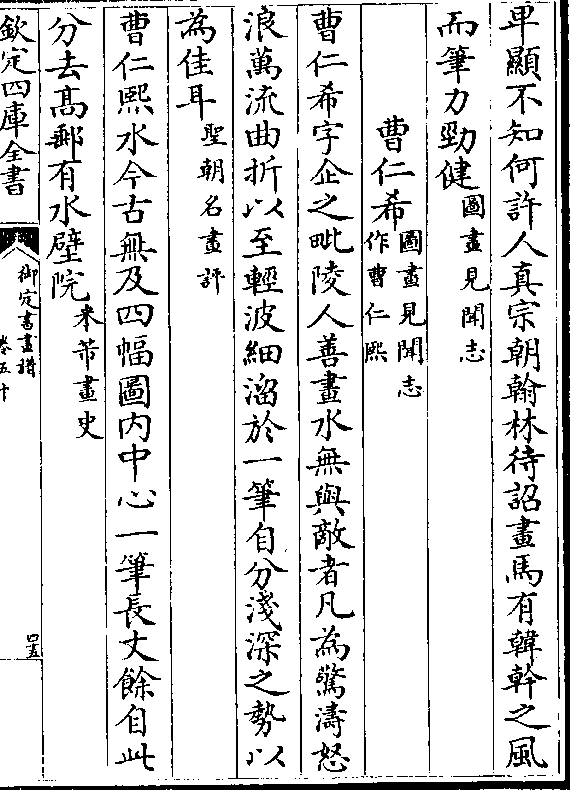 卑顯不知何許人真宗朝翰林待詔畫馬有韓幹之風
而筆力勁健圖畫見聞志
曹仁希圖畫見聞志作曹仁熙
曹仁希字企之毗陵人善畫水無與敵者凡為驚濤怒
浪萬流曲折以至輕波細溜於一筆自分淺深之勢以
為佳耳聖朝名畫評
曹仁熙水今古無及四幅圖内中心一筆長丈餘自此
分去髙郵有水壁院米芾畫史
欽定四庫全書
御定書畫譜
卷五十
四五